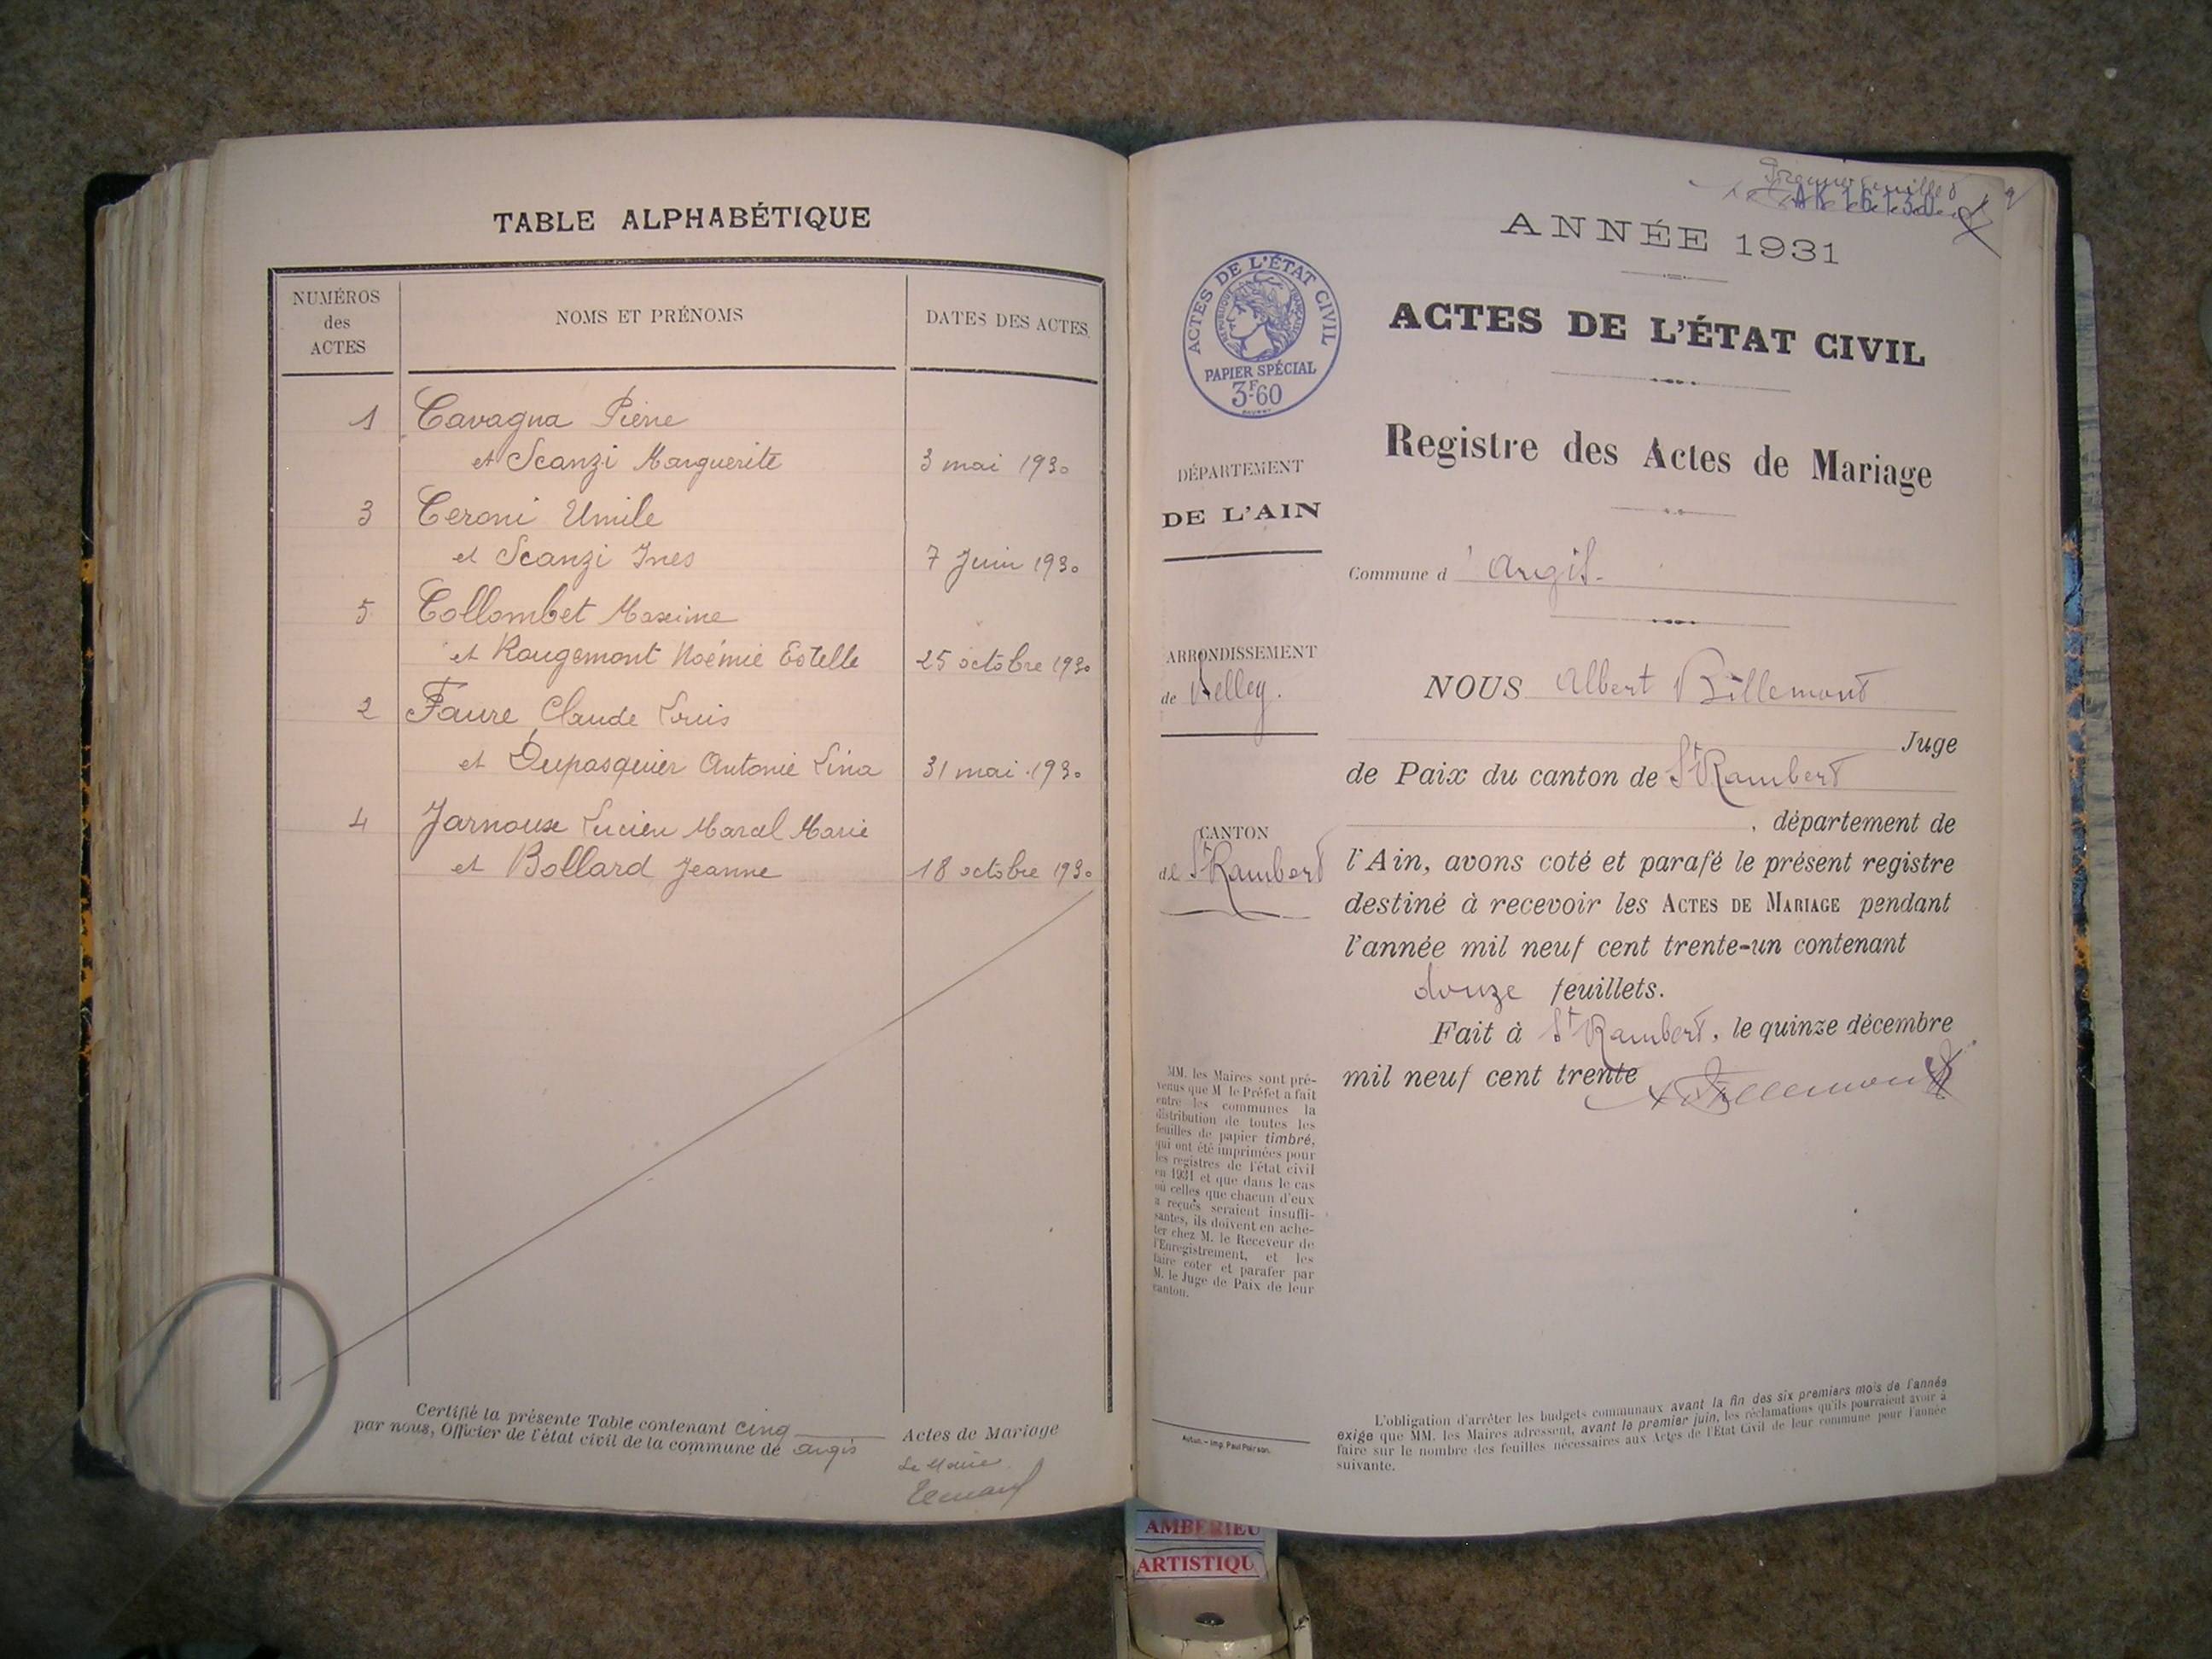 TABLE ALPHABÉTIQUE
NUMÉROS
des
ACTES
NOMS ET PRÉNOMS
DATES DES ACTES
1 Cavagna Pierre
et Scanzi Marguerite 3 mai 1930
3 Ceroni Umile
et Scanzi Ines 7 Juin 1930
5 Collombet Maxime
et Rougemont Noémie Estelle 25 octobre 1930
2 Faure Claude Louis
et Dupasquier Antonie Lina 31 mai 1930
4 Jarnoux Lucien Marcel Marie
et Bollard Jeanne 18 octobre 1930
Certifié la présente Table contenant cinq Actes de Mariage
par nous, Officier de l'état civil de la commune de Argis
Le Maire
Premier feuillet
ANNÉE 1931
ACTES DE L'ÉTAT CIVIL
RÉPUBLIQUE FRANÇAISE
PAPIER SPÉCIAL
3F.60
ACTES DE L'ÉTAT CIVIL
Registre des Actes de Mariage
DÉPARTEMENT
DE L'AIN
Commune d'Argis
ARRONDISSEMENT
de Belley.
CANTON
de St Rambert
NOUS Albert Billemont
Juge
de Paix du canton de St Rambert
, département de
l'Ain, avons coté et parafé le présent registre
destiné à recevoir les ACTES DE MARIAGE pendant
l'année mil neuf cent trente-un contenant
douze feuillets.
Fait à St Rambert, le quinze décembre
mil neuf cent trente
ABillemont
MM. les Maires sont pré-
venus que M le Préfet a fait
entre les communes la
distribution de toutes les
feuilles de papier timbré,
qui ont été imprimées pour
les registres de l'état civil
en 1931 et que dans le cas
où celles que chacun d'eux
a reçues seraient insuffi-
santes, ils doivent en ache-
ter chez M. le Receveur de
l'Enregistrement, et les
faire coter et parafer par
M. le Juge de Paix de leur
canton.
Autun. - Imp. Paul Poirson.
L'obligation d'arrêter les budgets communaux avant la fin des six premiers mois de l'année
exige que MM. les Maires adressent, avant le premier juin, les réclamations qu'ils pourraient avoir à
faire sur le nombre des feuilles nécessaires aux Actes de l'État Civil de leur commune pour l'année
suivante.
AMBERIEU
ARTISTIQU